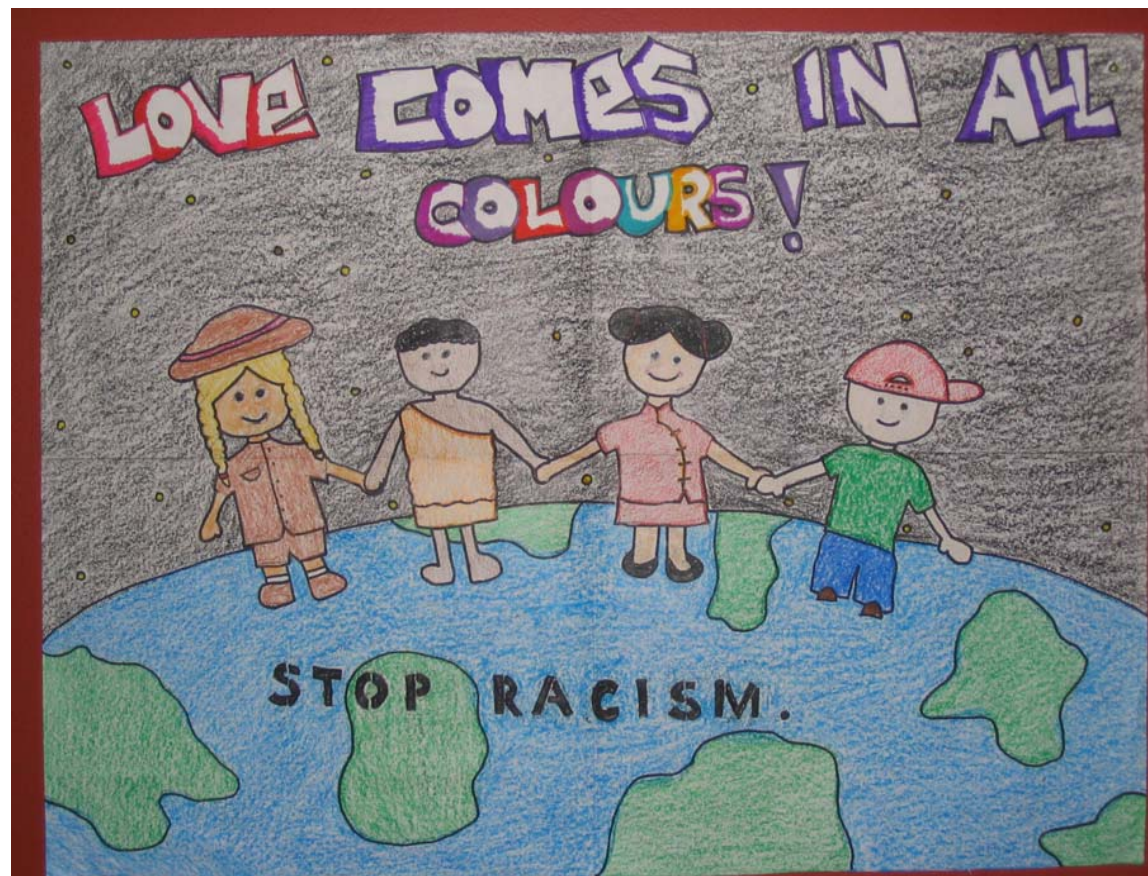 LOVE COMES IN ALL
COLOURS!
STOP RACISM.